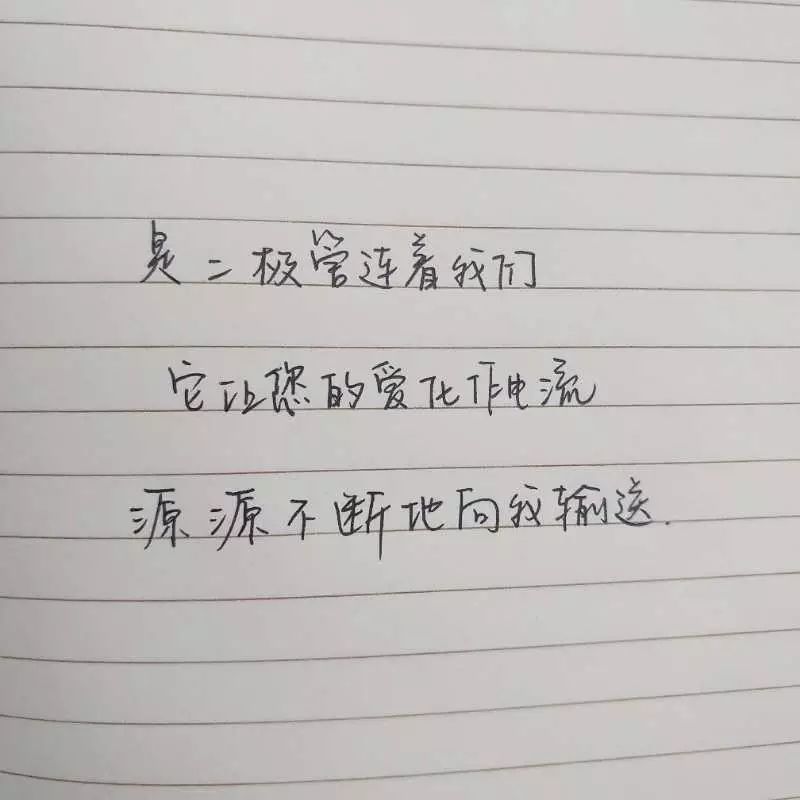 是二极管连着我们
它让您的爱化作电流
源源不断地向我输送.